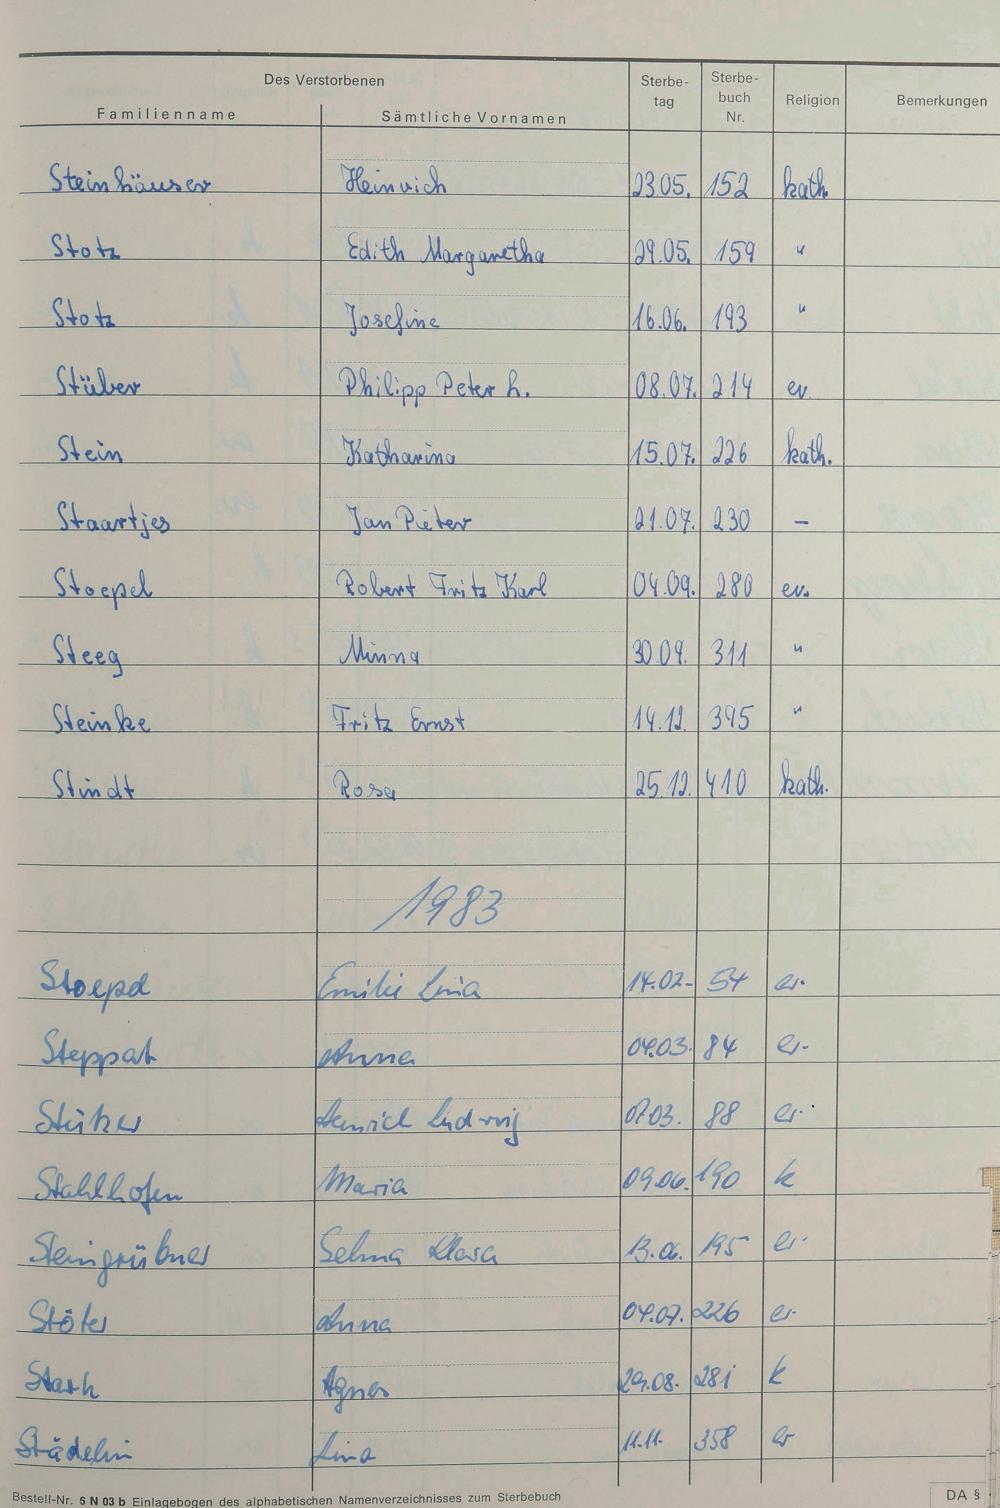 Des Verstorbenen
Familienname Sämtliche Vornamen Sterbe-tag Sterbe-buch Nr. Religion Bemerkungen
Steinhäuser Heinrich 23.05. 152 kath.
Stotz Edith Margaretha 29.05. 159 "
Stotz Josefine 16.06. 193 "
Stüber Philipp Peter h. 08.07. 214 ev.
Stein Katharina 15.07. 226 kath.
Staartjes Jan Pieter 21.07. 230 –
Stoepel Robert Fritz Karl 04.09. 280 ev.
Steeg Minna 30.09. 311 "
Steinke Fritz Ernst 14.12. 395 "
Stindt Rosa 25.12. 410 kath.
1983
Stoepel Emilie Lina 14.02. 54 ev.
Steppat Anna 04.03. 84 ev.
Heinrich Ludwig 07.03. 88 ev.
Stahlhofen Maria 09.06. 190 k
Steingrübner Selma Klara 13.06. 195 ev.
Stöter Anna 04.07. 226 ev
Stark Agnes 29.08. 281 k
Städelin Lina 11.11. 358 ev
Bestell-Nr. 6 N 03 b Einlagebogen des alphabetischen Namenverzeichnisses zum Sterbebuch DA §